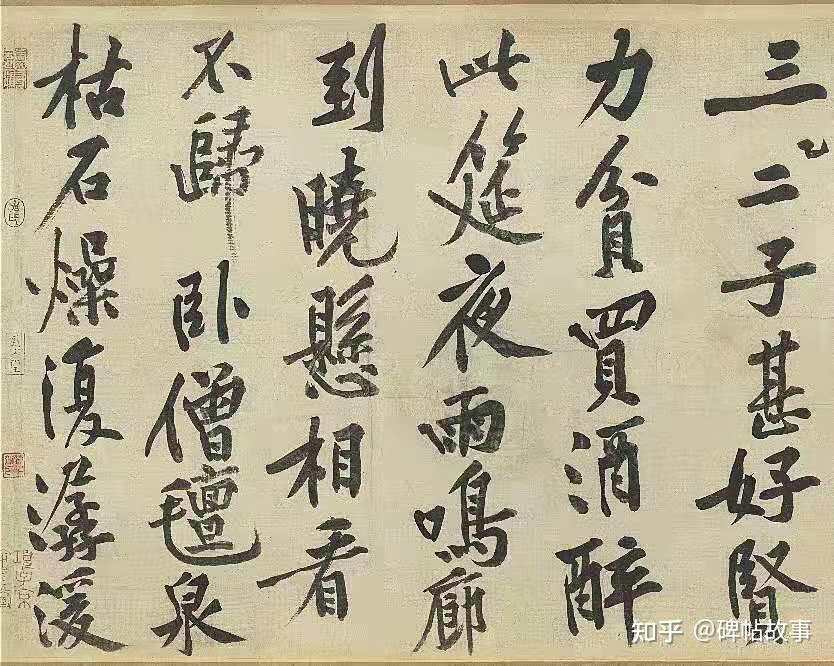 三二子甚好賢
力貧買酒醉
此筵夜雨鳴廊
到曉懸相看
不歸卧僧氈泉
枯石燥復潺湲
知乎 @碑帖故事